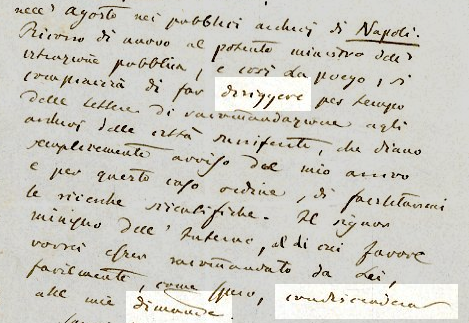 nell' agosto nei pubblici archivi di Napoli.
Ricorro di nuovo al potente ministro dell'
istruzione pubblica, e così La prego, si
compiacerà di far diriggere per tempo
delle lettere di raccomandazione agli
archivi delle città, che diano
semplicemente avviso del mio arrivo
e per questo caso ordine, di facilitarmi
le ricerche scientifiche. Il signor
ministro dell' Interno, al di cui favore
vorrei esser raccomandato da Lei,
facilmente, come spero, condiscenderà
alle mie dimande.